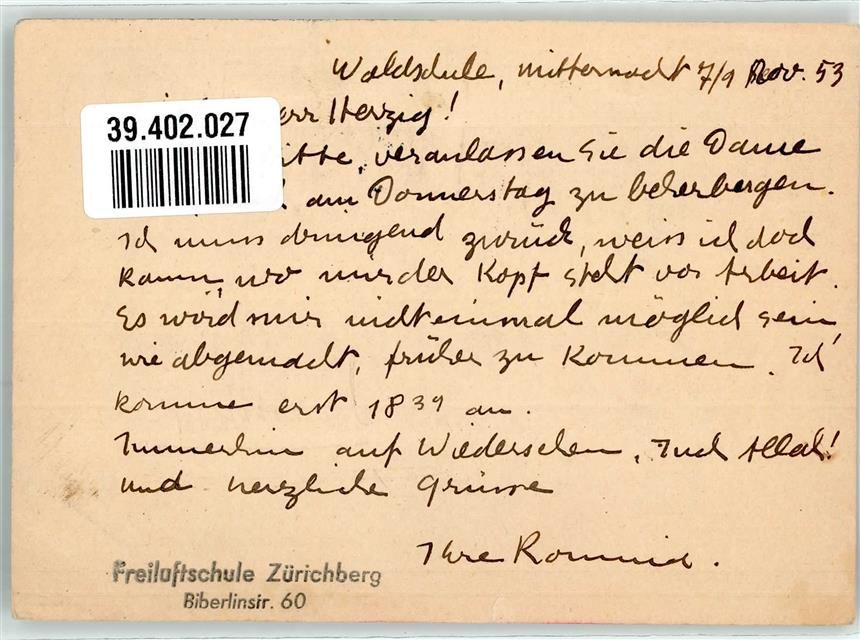 Waldschule, mitternacht 7/9 Nov. 53
Herr Herzig!
39.402.027
bitte, veranlassen Sie die Dame
am Donnerstag zu beherbergen.
Ich muss dringend zurück, weiss ich doch
kaum, wo mir der Kopf steht vor Arbeit.
Es wird mir nicht einmal möglich sein,
wie abgemacht, früher zu kommen. Ich
komme erst 18 39 an.
Immerhin auf Wiedersehen, Inch Allah!
und herzliche Grüsse
Ihre
Freiluftschule Zürichberg
Biberlinstr. 60